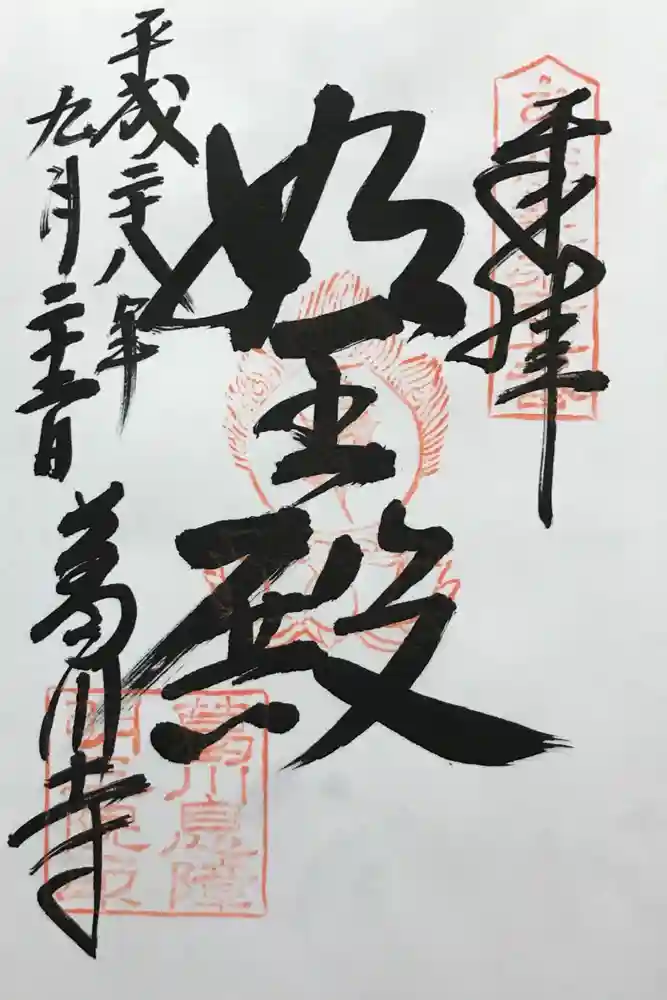 奉拝
明王殿
平成二十八年
九月二十五日
葛川寺
葛川息障
明王院